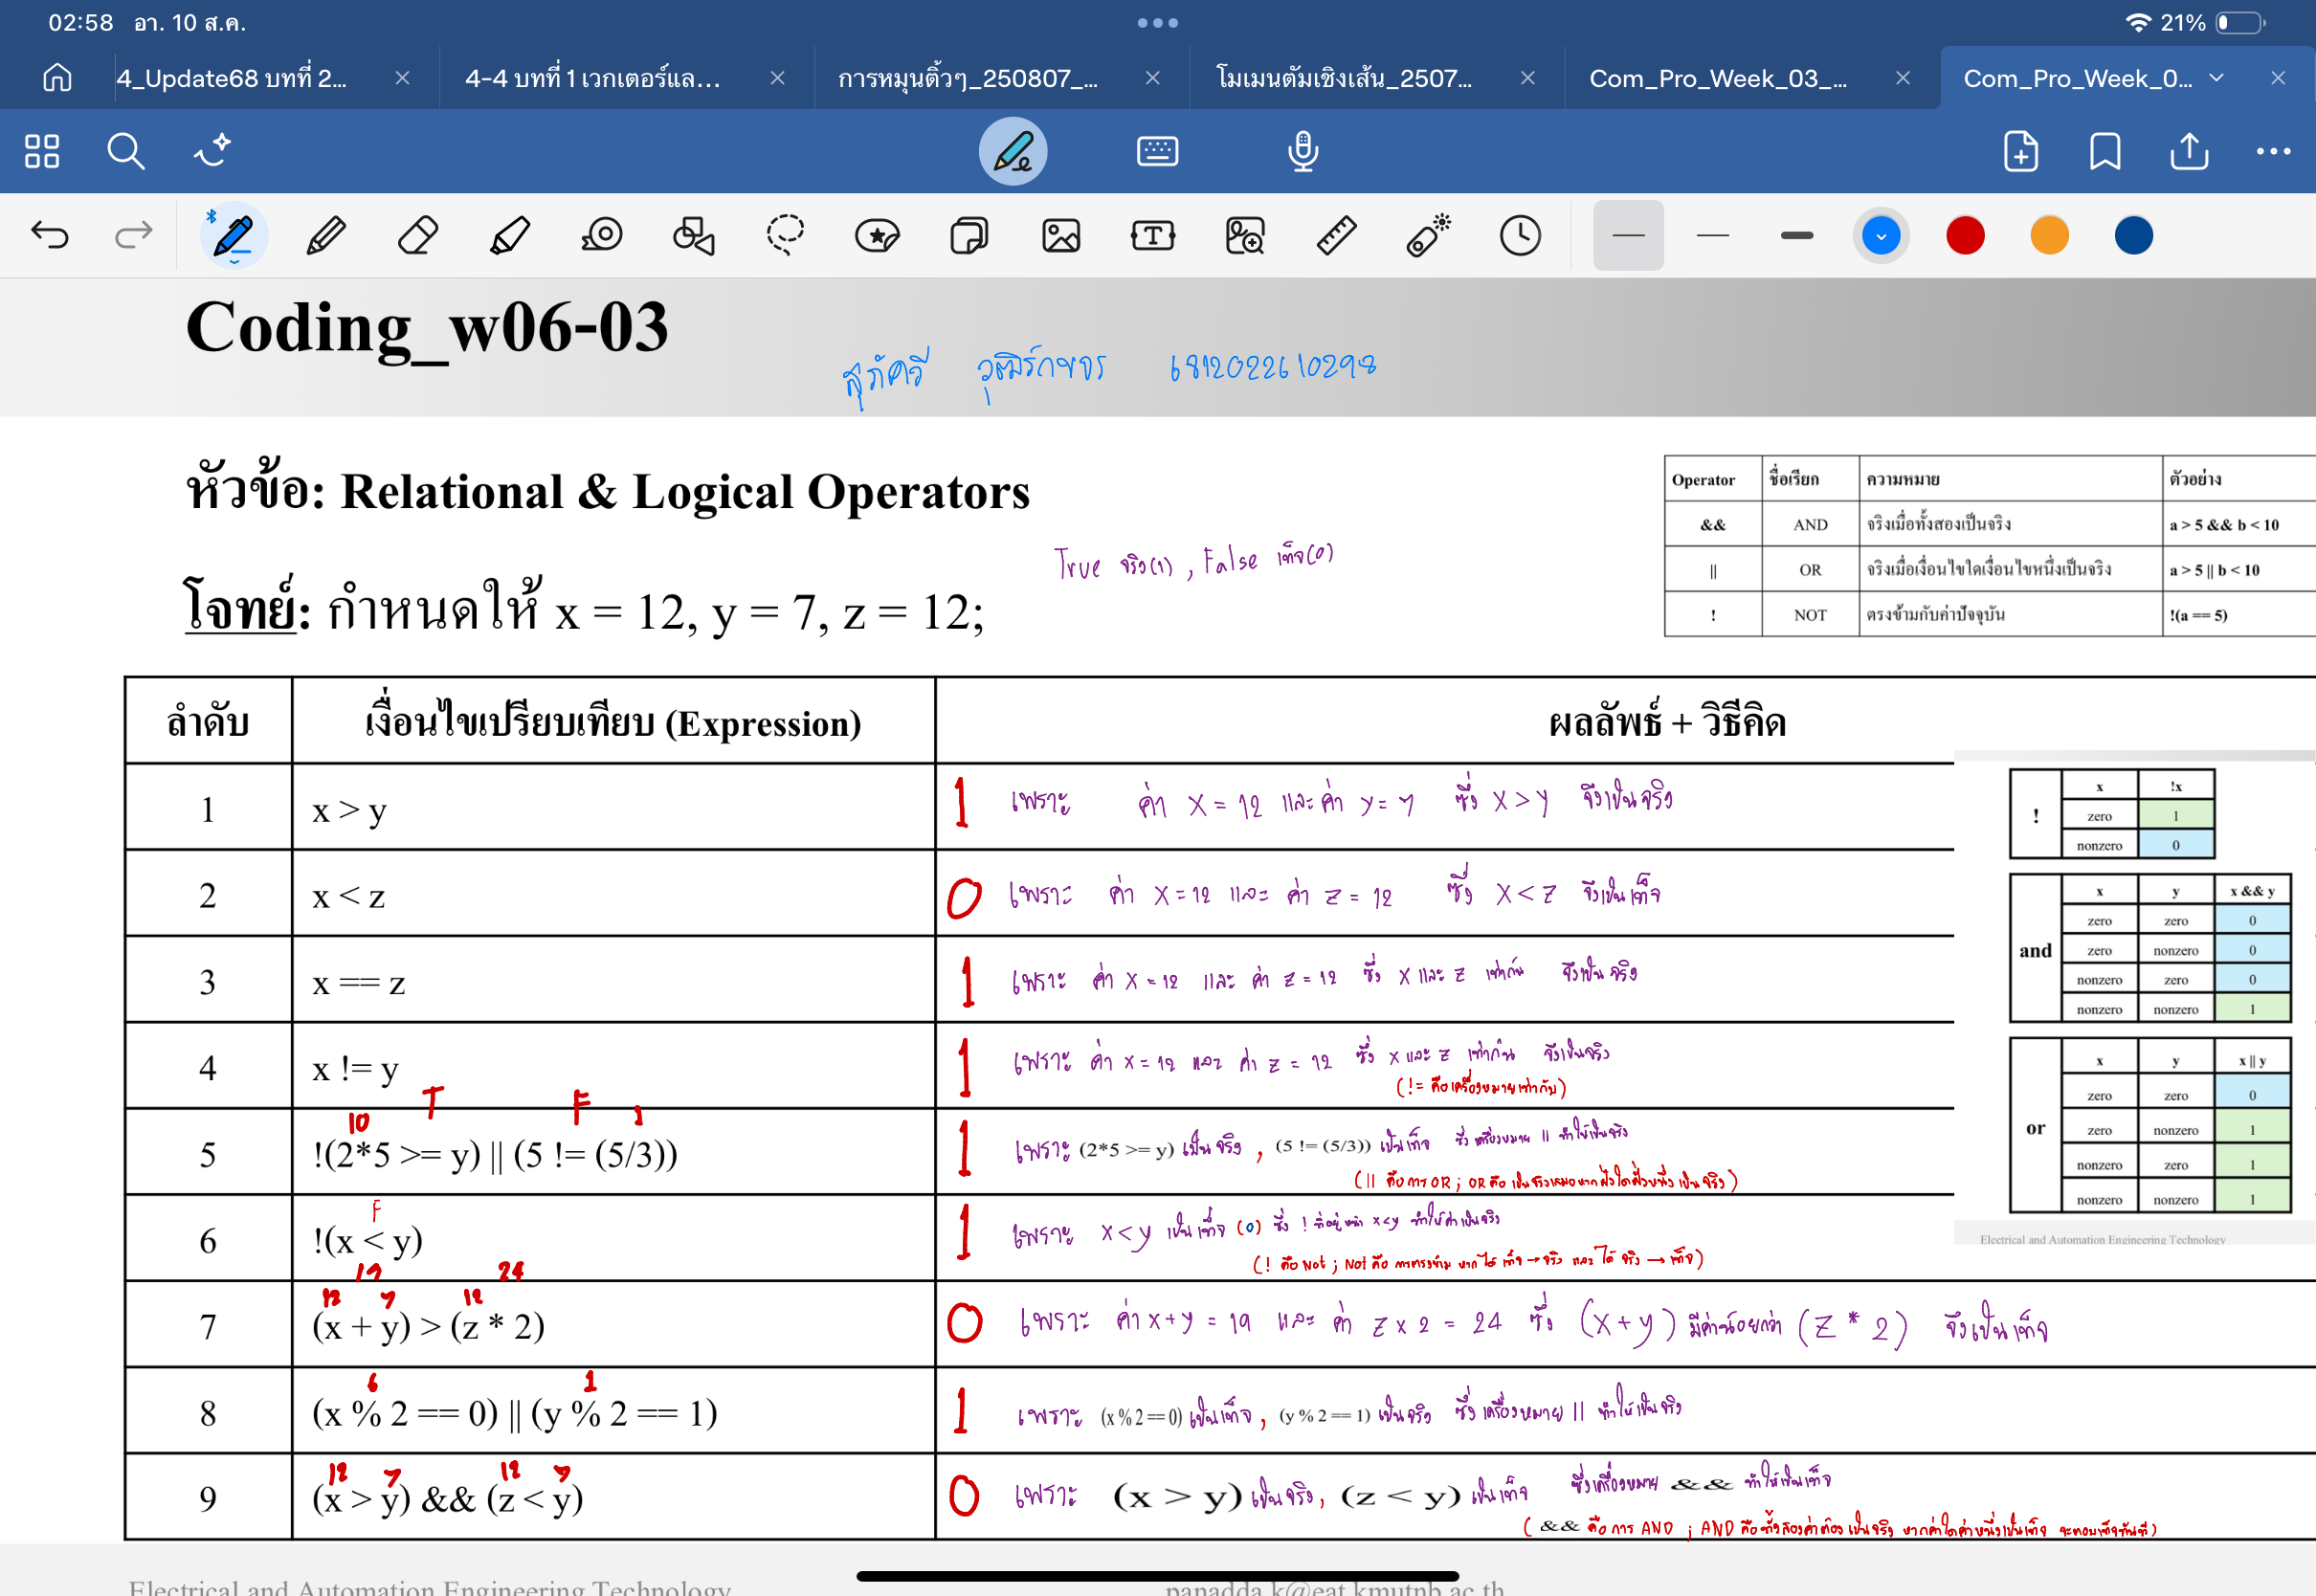 02:58 อา. 10 ส.ค.
21%
4_Update68 บทที่ 2...
4-4 บทที่ 1 เวกเตอร์แล...
การหมุนติ้วๆ_250807_...
โมเมนตัมเชิงเส้น_2507...
Com_Pro_Week_03_...
Com_Pro_Week_0...
Coding_w06-03
6812022610298
หัวข้อ: Relational & Logical Operators
True จริง(1) , False เท็จ(0)
โจทย์: กำหนดให้ x = 12, y = 7, z = 12;
Operator ชื่อเรียก ความหมาย ตัวอย่าง
&& AND จริงเมื่อทั้งสองเป็นจริง a > 5 && b < 10
|| OR จริงเมื่อเงื่อนไขใดเงื่อนไขหนึ่งเป็นจริง a > 5 || b < 10
! NOT ตรงข้ามกับค่าปัจจุบัน !(a == 5)
ลำดับ เงื่อนไขเปรียบเทียบ (Expression) ผลลัพธ์ + วิธีคิด
1 x > y 1 เพราะ ค่า X = 12 และ ค่า y = 7 ซึ่ง X > Y จึงเป็นจริง
2 x < z 0 เพราะ ค่า X = 12 และ ค่า Z = 12 ซึ่ง X < Z จึงเป็นเท็จ
3 x == z 1 เพราะ ค่า X = 12 และ ค่า Z = 12 ซึ่ง X และ Z เท่ากัน จึงเป็นจริง
4 x != y 1 เพราะ ค่า X = 12 และ ค่า Z = 12 ซึ่ง X และ Z เท่ากัน จึงเป็นจริง
(!= คือเครื่องหมายเท่ากับ)
10 T F 1
5 !(2*5 >= y) || (5 != (5/3)) 1 เพราะ (2*5 >= y) เป็นจริง , (5 != (5/3)) เป็นเท็จ ซึ่ง เครื่องหมาย || ทำให้เป็นจริง
(|| คือการ OR ; OR คือ เป็นจริงเสมอหากฝั่งใดฝั่งหนึ่งเป็นจริง)
F
6 !(x < y) 1 เพราะ X < Y เป็นเท็จ (0) ซึ่ง ! ที่อยู่หน้า x<y ทำให้ค่าเป็นจริง
(! คือ Not ; Not คือ การตรงข้าม หากได้ เท็จ → จริง และ ได้ จริง → เท็จ)
19 24
12 7 12
7 (x + y) > (z * 2) 0 เพราะ ค่า x+y = 19 และ ค่า Z x 2 = 24 ซึ่ง (X+Y) มีค่าน้อยกว่า (Z * 2) จึงเป็นเท็จ
6 1
8 (x % 2 == 0) || (y % 2 == 1) 1 เพราะ (x % 2 == 0) เป็นเท็จ , (y % 2 == 1) เป็นจริง ซึ่ง เครื่องหมาย || ทำให้เป็นจริง
12 7 12 7
9 (x > y) && (z < y) 0 เพราะ (x > y) เป็นจริง, (z < y) เป็นเท็จ ซึ่งเครื่องหมาย && ทำให้เป็นเท็จ
( && คือ การ AND ; AND คือทั้งสองค่าต้องเป็นจริง หากค่าใดค่าหนึ่งเป็นเท็จ จะตอบเท็จทันที)
! x !x
zero 1
nonzero 0
and x y x && y
zero zero 0
zero nonzero 0
nonzero zero 0
nonzero nonzero 1
or x y x || y
zero zero 0
zero nonzero 1
nonzero zero 1
nonzero nonzero 1
Electrical and Automation Engineering Technology
Electrical and Automation Engineering Technology
panadda.k@eat.kmutnb.ac.th